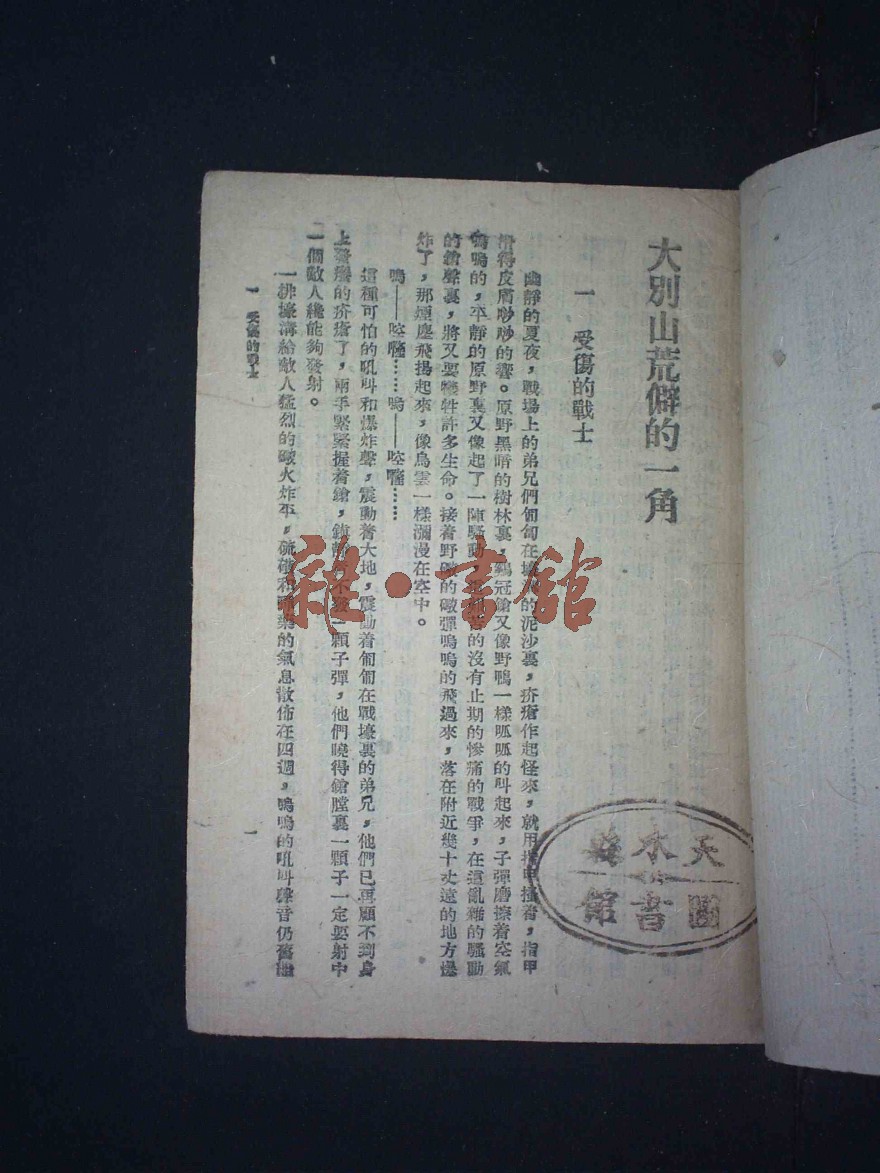 大別山荒僻的一角
一 受傷的戰士
幽靜的夏夜，戰場上的弟兄們匍匐在壕溝的泥沙裏，疥瘡作起怪來，就用指甲搔着，指甲
滑得皮膚吵吵的響。原野黑暗的樹林裏，鷄冠鎗又像野鴨一樣呱呱的叫起來，子彈磨擦着空氣
嗚嗚的，平靜的原野裏又像起了一陣騷動，的沒有止期的慘痛的戰爭，在這亂雜的騷動
的鎗聲裏，將又要犧牲許多生命。接着野礮的礮彈嗚嗚的飛過來，落在附近幾十丈遠的地方爆
炸了，那煙塵飛揚起來，像烏雲一樣瀰漫在空中。
嗚——啌嚨……嗚——啌嚨……
這種可怕的吼叫和爆炸聲，震動着大地，震動着匍匐在戰壕裏的弟兄，他們已再顧不到身
上發癢的疥瘡了，兩手緊緊握着鎗，不發一顆子彈，他們曉得鎗膛裏一顆子一定要射中
一個敵人纔能夠發射。
一排壕溝給敵人猛烈的礮火炸平，硫磺和藥的氣息散佈在四週，嗚嗚的吼叫聲音仍舊繼
一 受傷的戰士
一
雜·書館
天水縣
圖書館